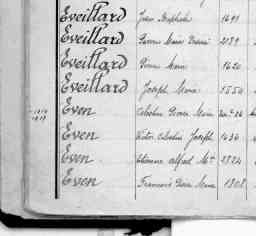 Eveillard Jean 1491
Eveillard Pierre Marie 2139
Eveillard Pierre Marie 1620
Eveillard Joseph Marie 1550
Even Célestin Pierre Marie
Even Victor Célestin Joseph 1436
Even Etienne Alfred Mie 2324
Even François Pierre Marie 1308